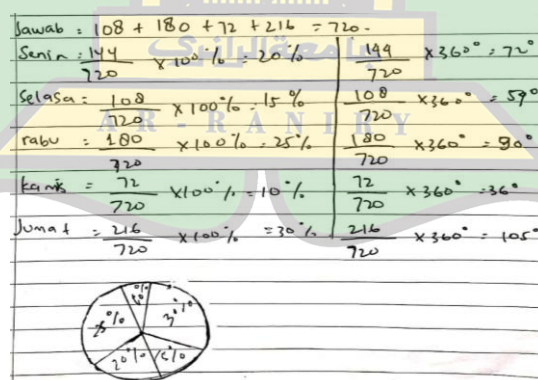 Jawab : 108 + 180 + 72 + 216 = 720.
Senin : 144/720 x 100 % = 20 % 144/720 x 360° = 72°
Selasa = 108/720 x 100 % = 15 % 108/720 x 360° = 59°
rabu = 180/720 x 100 % = 25 % 180/720 x 360° = 90°
kamis = 72/720 x 100 % = 10 % 72/720 x 360° = 36°
Jumat = 216/720 x 100 % = 30 % 216/720 x 360° = 105°
جامعة الرانري
AR-RANIRY
30 %
25 %
20 % 15 %